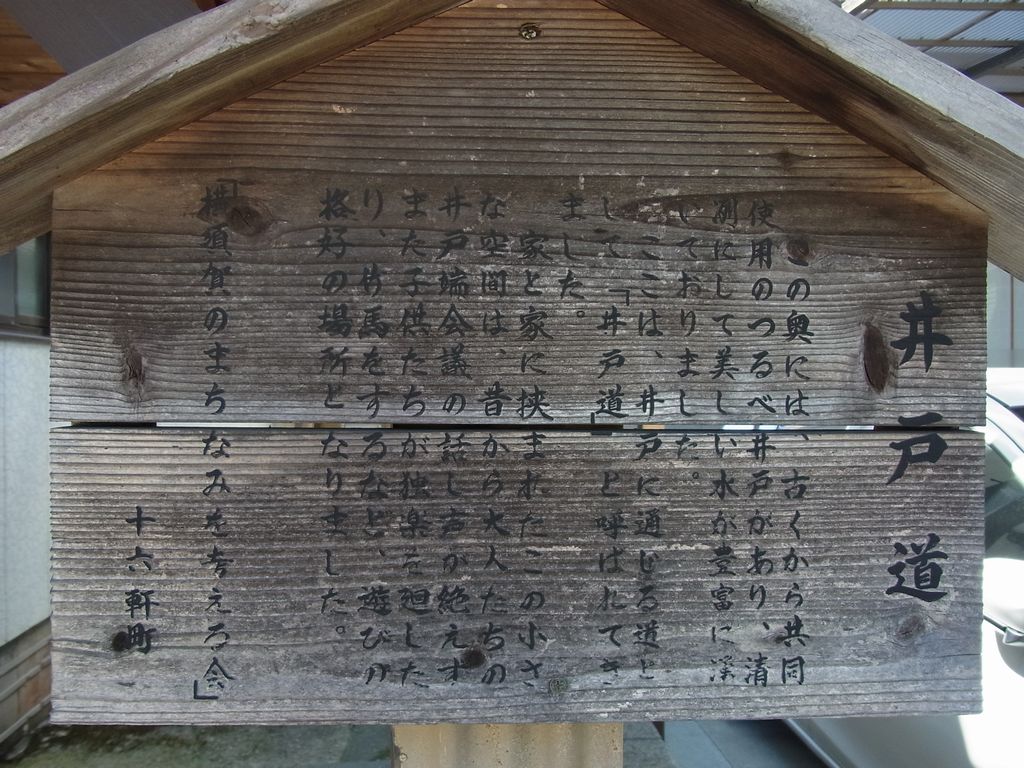 井戸道
この奥には、古くから共同
使用のつるべ井戸があり、清
冽にして美しい水が豊富に湧
いておりました。
ここは、井戸に通じる道と
して「井戸道」と呼ばれてき
ました。
家と家に挟まれたこの小さ
な空間は、昔から大人たちの
井戸端会議の話し声が絶えず
また子供たちが独楽を廻した
り、竹馬をするなど、遊びの
格好の場所となりました。
「横須賀のまちなみを考える会」
十六軒町